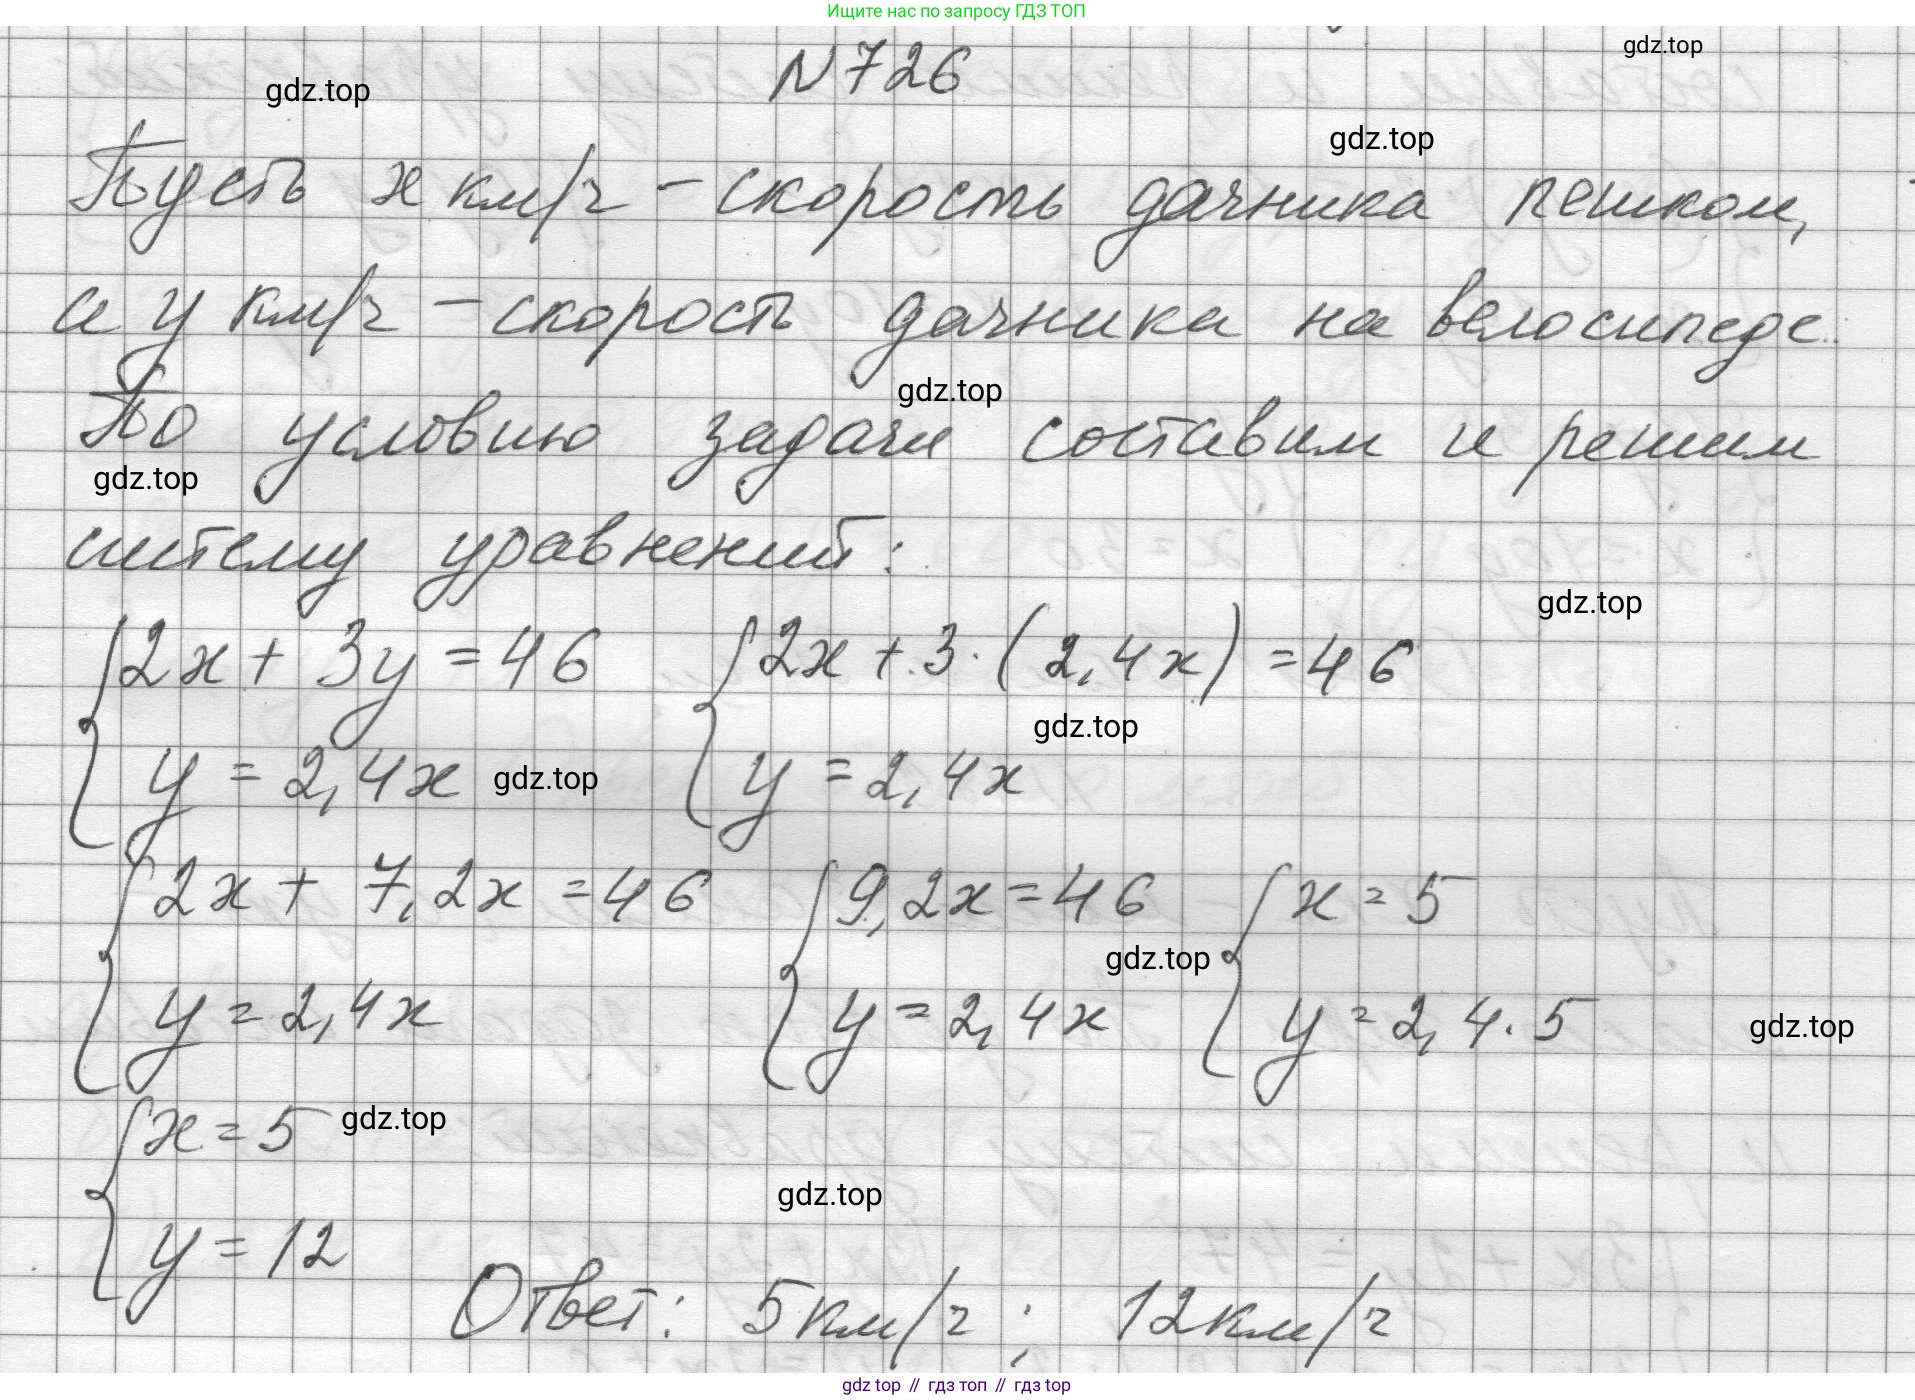 Ищите нас по запросу ГДЗ ТОП
gdz.top
N 726
gdz.top
gdz.top
Пусть x км/ч - скорость дачника пешком,
а y км/ч - скорость дачника на велосипеде.
gdz.top
По условию задачи составим и решим
gdz.top
систему уравнений:
gdz.top
{2x + 3y = 46 {2x + 3·(2,4x) = 46
gdz.top
y = 2,4x gdz.top y = 2,4x
{2x + 7,2x = 46 {9,2x = 46 {x = 5
gdz.top
y = 2,4x y = 2,4x y = 2,4·5 gdz.top
{x = 5 gdz.top
gdz.top
y = 12
Ответ: 5 км/ч; 12 км/ч
gdz top // гдз топ // гдз top